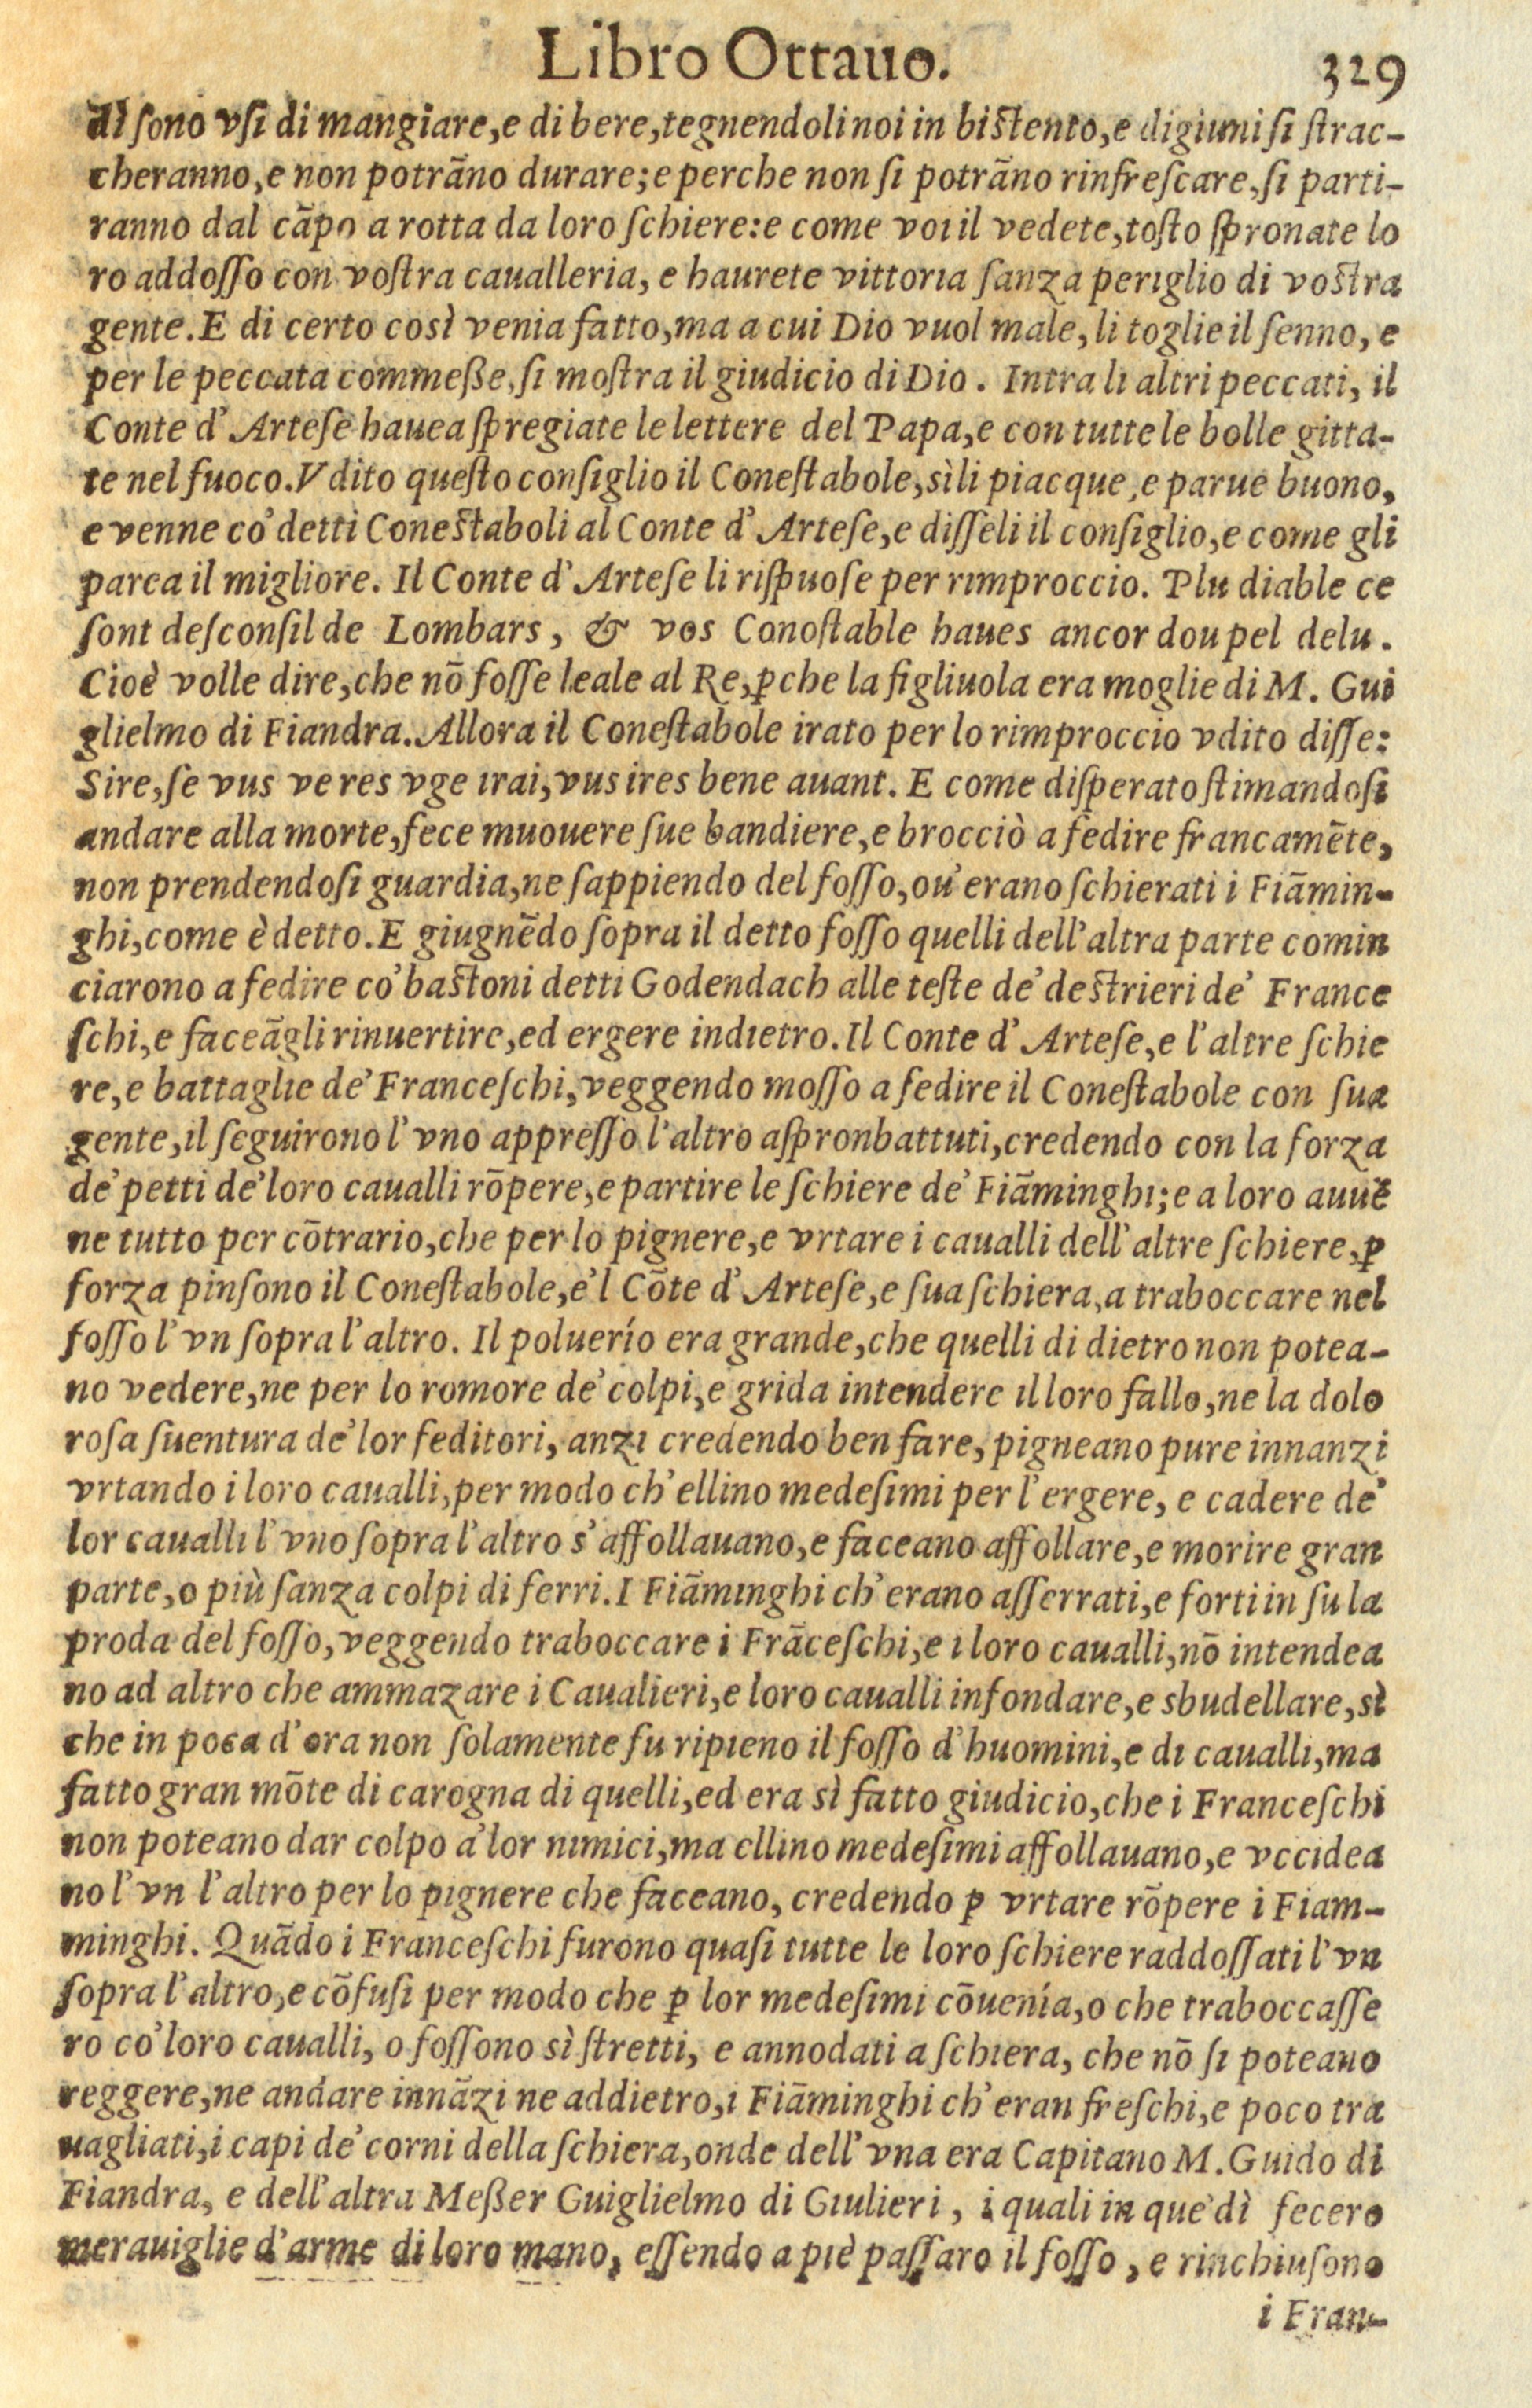 Libro Ottauo. 329
dì sono vsi di mangiare, e di bere, tegnendoli noi in bistento, e digiuni si strac-
cheranno, e non potrāno durare; e perche non si potrāno rinfrescare, si parti-
ranno dal cāpo a rotta da loro schiere: e come voi il vedete, tosto spronate lo
ro addosso con vostra caualleria, e haurete vittoria sanza periglio di vostra
gente. E di certo così venia fatto, ma a cui Dio vuol male, li toglie il senno, e
per le peccata commeße, si mostra il giudicio di Dio. Intra li altri peccati, il
Conte d'Artese hauea spregiate le lettere del Papa, e con tutte le bolle gitta-
te nel fuoco. Vdito questo consiglio il Conestabole, sì li piacque, e parue buono,
e venne co' detti Conestaboli al Conte d'Artese, e disseli il consiglio, e come gli
parea il migliore. Il Conte d'Artese li rispuose per rimproccio. Plu diable ce
sont desconsil de Lombars, & vos Conostable haues ancor dou pel delu.
Cioè volle dire, che nō fosse leale al Re, ꝑche la figliuola era moglie di M. Gui
glielmo di Fiandra. Allora il Conestabole irato per lo rimproccio vdito disse:
Sire, se vus ve res vge irai, vus ires bene auant. E come disperato stimandosi
andare alla morte, fece muouere sue bandiere, e brocciò a fedire francamēte,
non prendendosi guardia, ne sappiendo del fosso, ou'erano schierati i Fiāmin-
ghi, come è detto. E giugnēdo sopra il detto fosso quelli dell'altra parte comin
ciarono a fedire co' bastoni detti Godendach alle teste de' destrieri de' France
schi, e faceāgli rinuertire, ed ergere indietro. Il Conte d'Artese, e l'altre schie
re, e battaglie de' Franceschi, veggendo mosso a fedire il Conestabole con sua
gente, il seguirono l'vno appresso l'altro aspronbattuti, credendo con la forza
de' petti de' loro caualli rōpere, e partire le schiere de' Fiāminghi; e a loro auuē
ne tutto per cōtrario, che per lo pignere, e vrtare i caualli dell'altre schiere, ꝑ
forza pinsono il Conestabole, e'l Cōte d'Artese, e sua schiera, a traboccare nel
fosso l'vn sopra l'altro. Il poluerío era grande, che quelli di dietro non potea-
no vedere, ne per lo romore de' colpi, e grida intendere il loro fallo, ne la dolo
rosa suentura de' lor feditori, anzi credendo ben fare, pigneano pure innanzi
vrtando i loro caualli, per modo ch'ellino medesimi per l'ergere, e cadere de'
lor caualli l'vno sopra l'altro s'affollauano, e faceano affollare, e morire gran
parte, o più sanza colpi di ferri. I Fiāminghi ch'erano asserrati, e forti in su la
proda del fosso, veggendo traboccare i Frāceschi, e i loro caualli, nō intendea
no ad altro che ammazare i Caualieri, e loro caualli infondare, e sbudellare, sì
che in poca d'ora non solamente fu ripieno il fosso d'huomini, e di caualli, ma
fatto gran mōte di carogna di quelli, ed era sì fatto giudicio, che i Franceschi
non poteano dar colpo a' lor nimici, ma ellino medesimi affollauano, e vccidea
no l'vn l'altro per lo pignere che faceano, credendo ꝑ vrtare rōpere i Fiam-
minghi. Quādo i Franceschi furono quasi tutte le loro schiere raddossati l'vn
sopra l'altro, e cōfusi per modo che ꝑ lor medesimi cōuenía, o che traboccasse
ro co' loro caualli, o fossono sì stretti, e annodati a schiera, che nō si poteano
reggere, ne andare innāzi ne addietro, i Fiāminghi ch'eran freschi, e poco tra
uagliati, i capi de' corni della schiera, onde dell'vna era Capitano M. Guido di
Fiandra, e dell'altra Meßer Guiglielmo di Giulieri, i quali in que' dì fecero
merauiglie d'arme di loro mano, essendo a piè passaro il fosso, e rinchiusono
i Fran-